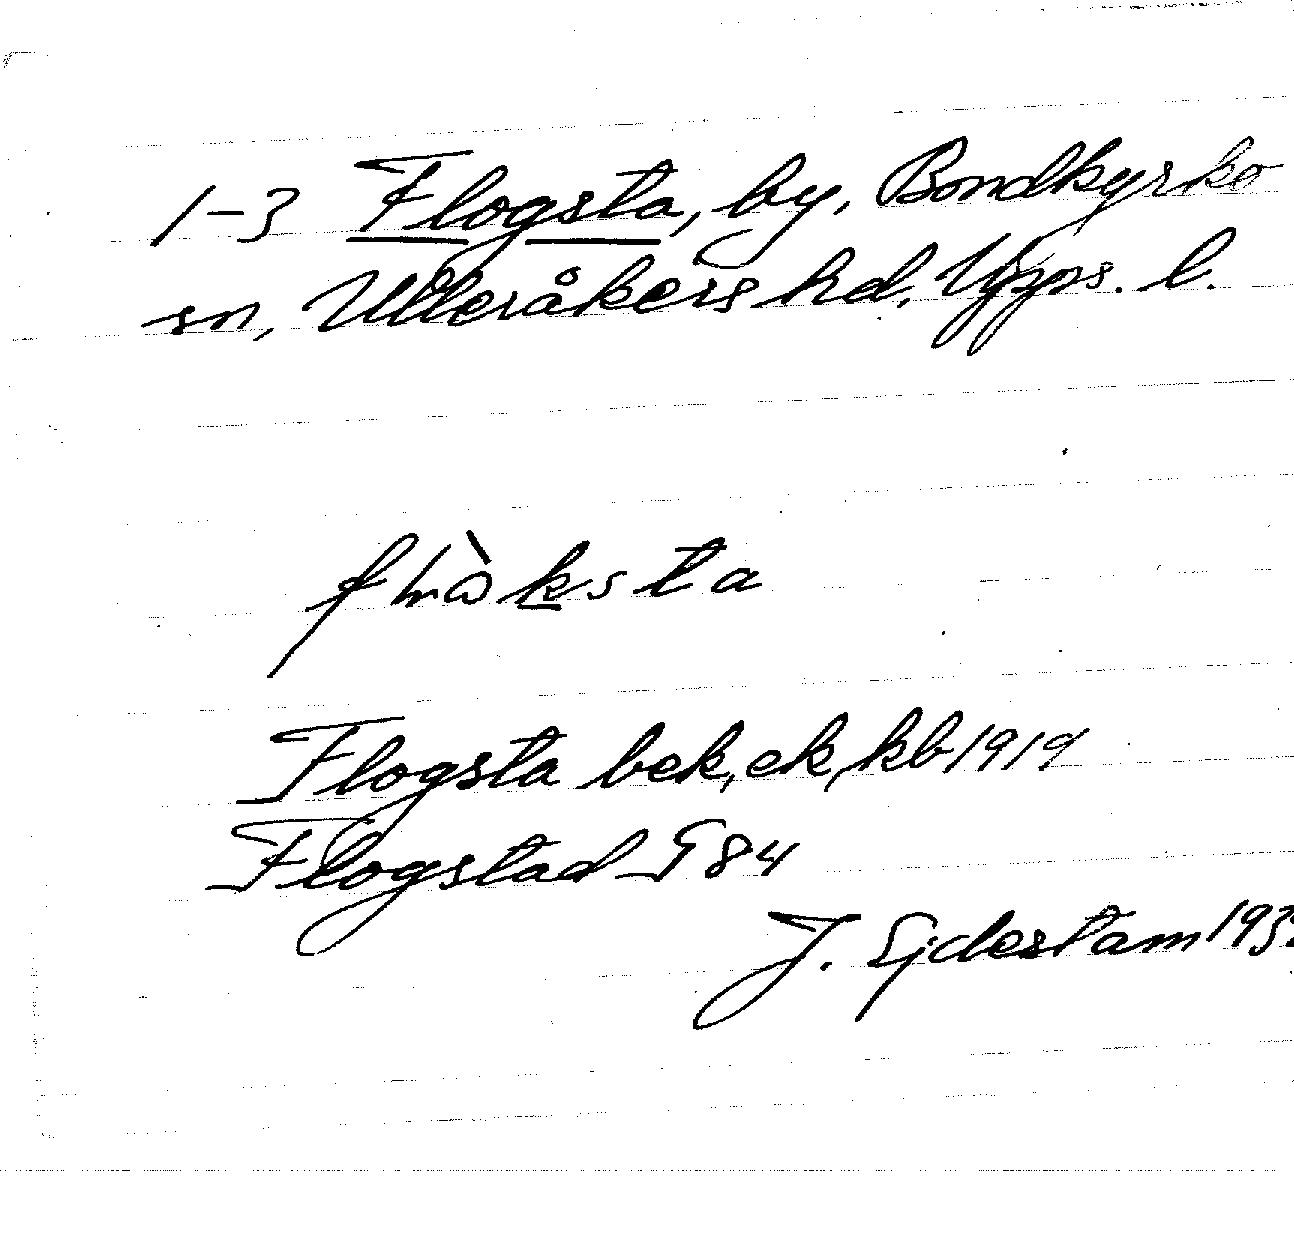 1-3 Flogsta, by, Bondkyrko
sn, Ulleråkers hd. Upps. l.
Flogsta bek, ek, kb 1919
Flogstad G 84
J. Sjdestam